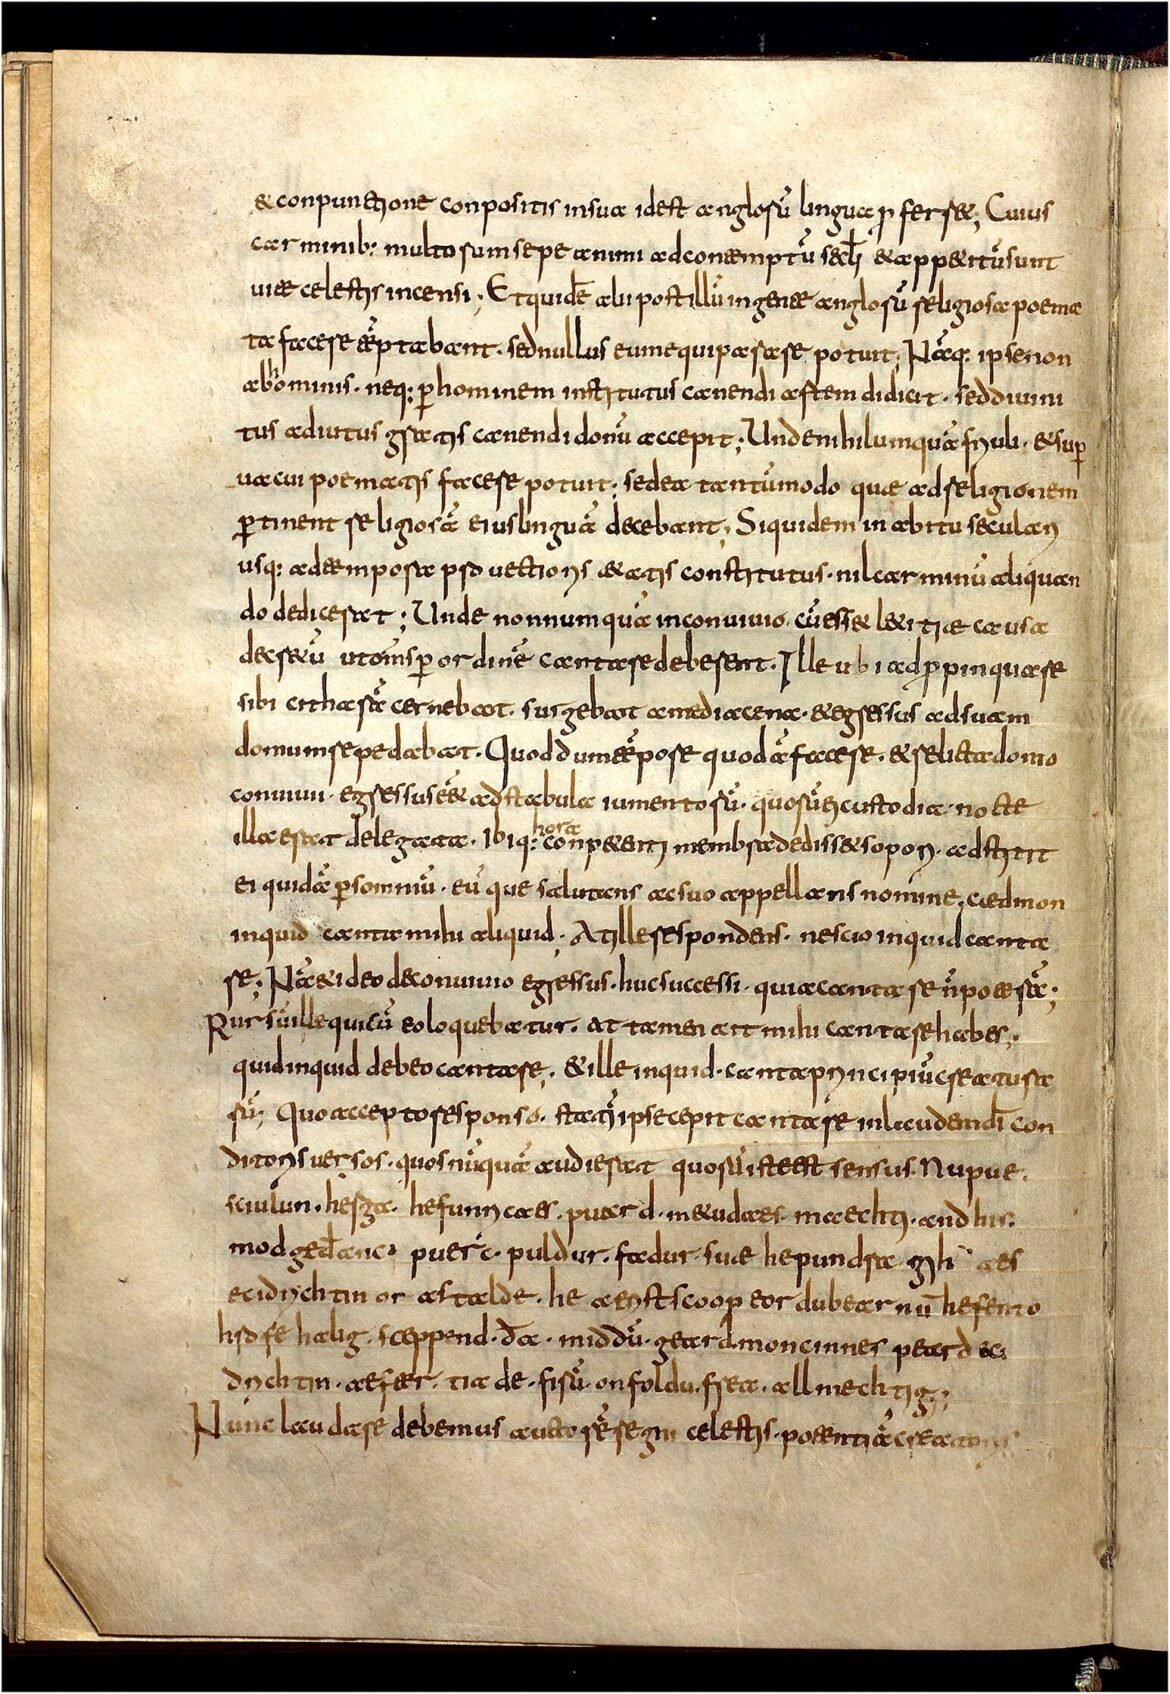 & conpunctione conpositis in sua id est anglorū lingua ꝓferret; Cuius
carminib: multorum sepe animi ad contemptū secƚi & appetitū sunt
uitae celestis incensi; Et quidē alii post illū in gente anglorū religiosa poema
ta facere tēptabant. sed nullus eum equiparare potuit; Nāq: ipse non
ab hominis. neq: ꝑ hominem institutus canendi artem didicit. sed diuini
tus adiutus gratis canendi donū accepit; Unde nihil umquā friuoli. & suꝑ
uacui poematis facere potuit; sed ea tantūmodo quae ad religionem
ꝑtinent religiosā eius linguā decebant; Siquidem in abitu seculari
usq: ad tempora prouectioris aetatis constitutus. nil carminū aliquan
do dedicerat; Unde non numquā in conuiuio. cū ess& laetitiae causa
decretū ut om̄s ꝑ ordinē cantare deberent. Ille ubi adꝓpinquare
sibi citharā cernebat. surgebat a media cena. & egressus ad suam
domum sepedabat. Quod dum tēpore quodā facere. & relicta domo
conuiui. egressus eēt ad stabula iumentorū. quorū ei custodia. nocte
illa erat delegata. Ibiq: hora conpetenti membra dediss& sopori. adstitit
ei quidā ꝑ somniū. eūque salutans ac suo appellans nomine. caedmon
inquid canta mihi aliquid; At ille respondens. nescio inquid canta
re; Nā & ideo de conuiuio egressus. huc successi. quia cantare n̄ poterā;
Rursū ille qui cū eo loquebatur. at tamen ait mihi cantare habes;
quid inquid debeo cantare; & ille inquid. canta principiū creatura
rū; Quo accepto responso. statī ipse cepit cantare in laudem dī con
ditoris uersos. quos nūquā audierat quorū iste est sensus. Nu pue.
sciulun. herga. hefunricaes. puard. metudaes. maechti. and his.
modgedanc. puerc. puldur. fadur. sue he pundra gih aes
ecidrichtin or astalde. he aerist scoop eor du bearnū hefen to
hrofe halig. sceppend. đa. middū. geard moncinnes peard eci
drichtin. aefter. tiade. firū. on foldu. frea. allmechtig;;
Nunc laudare debemus auctorē regni celestis. potentiā creatoris